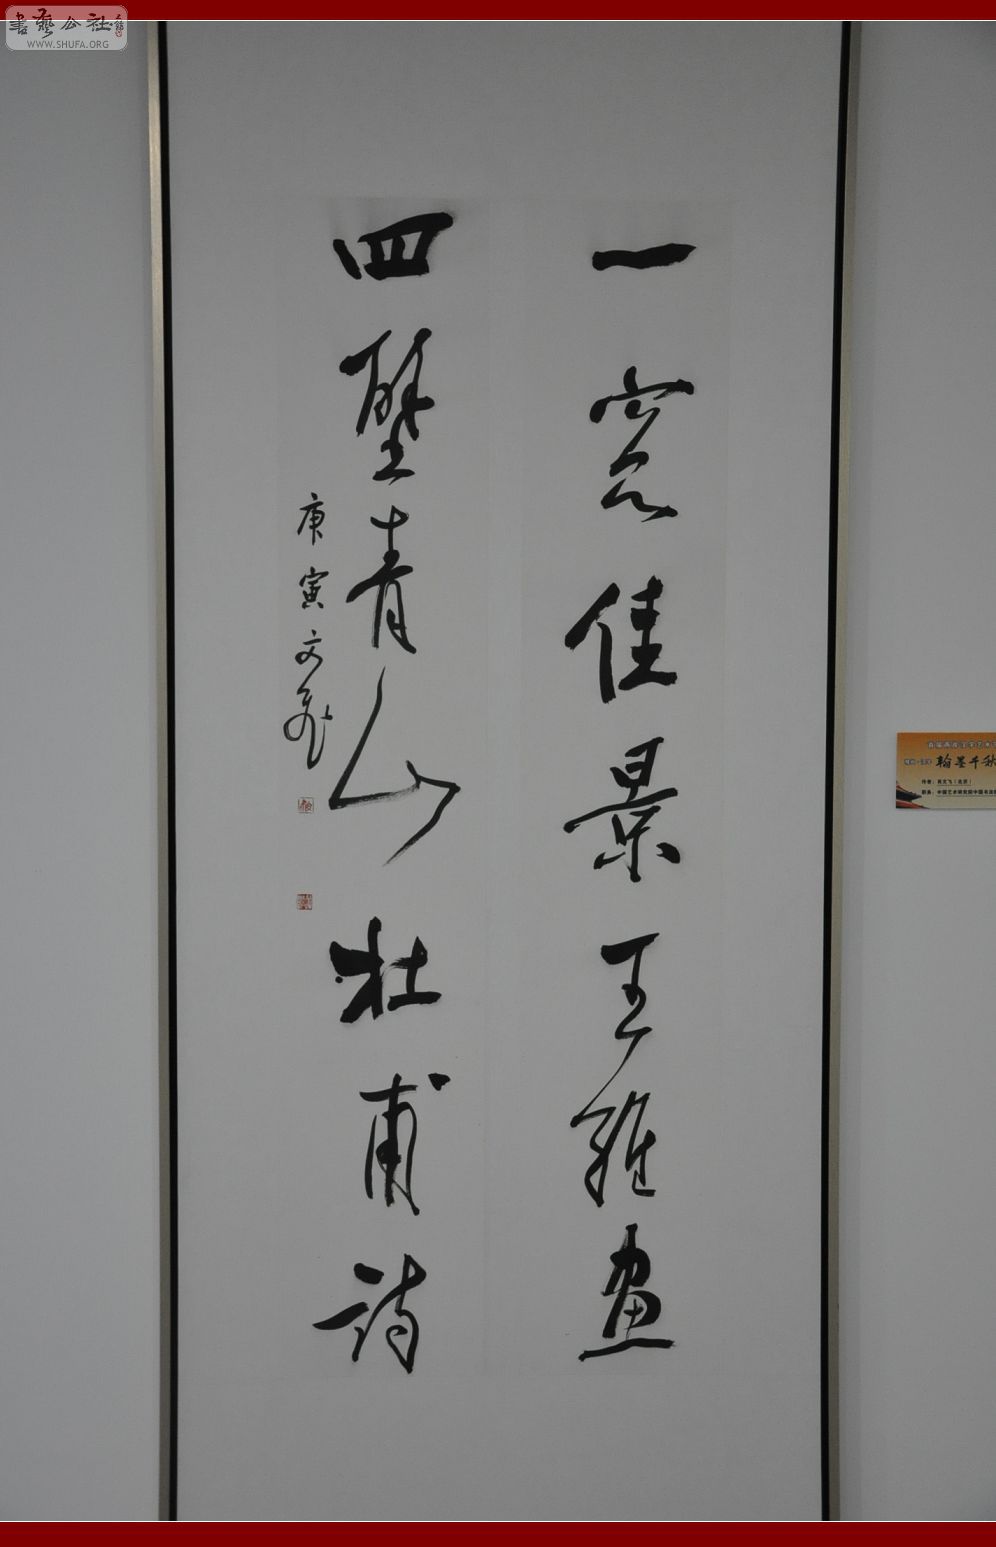 書藝公社
WWW.SHUFA.ORG
一窓佳景王維畫
四壁青山杜甫詩
庚寅文飛
翰墨千秋